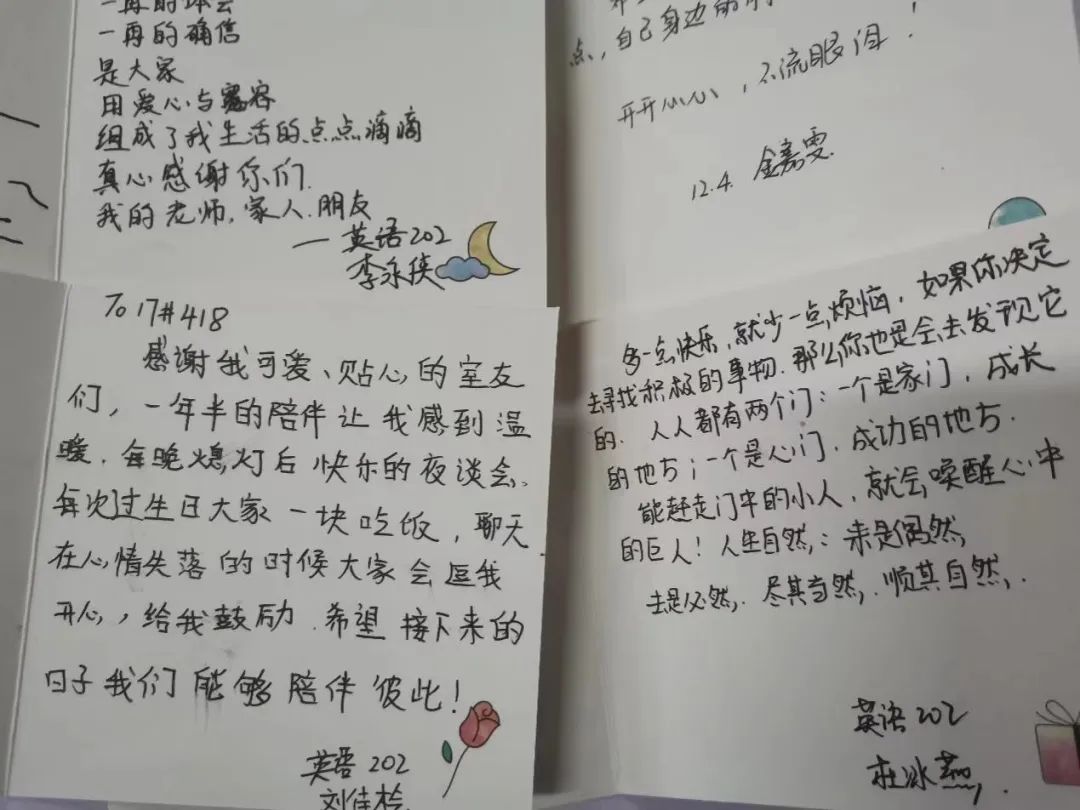 一再的体会
一再的确信
是大家
用爱心与宽容
组成了我生活的点点滴滴
真心感谢你们.
我的老师,家人.朋友
——英语202
李永侠
点,自己身边的
开开心心,不流眼泪!
12.4. 金嘉雯
To 17#418
感谢我可爱、贴心的室友
们,一年半的陪伴让我感到温
暖.每晚熄灯后快乐的夜谈会.
每次过生日大家一块吃饭,聊天
在心情失落的时候大家会逗我
开心,给我鼓励.希望接下来的
日子我们能够陪伴彼此!
英语202
刘佳
多一点快乐,就少一点烦恼,如果你决定
去寻找积极的事物.那么你也是会去发现它
的.人人都有两个门:一个是家门,成长
的地方;一个是心门,成功的地方.
能赶走门中的小人,就会唤醒心中
的巨人!人生自然:来是偶然,
去是必然,尽其当然,顺其自然.
英语202
杜冰燕